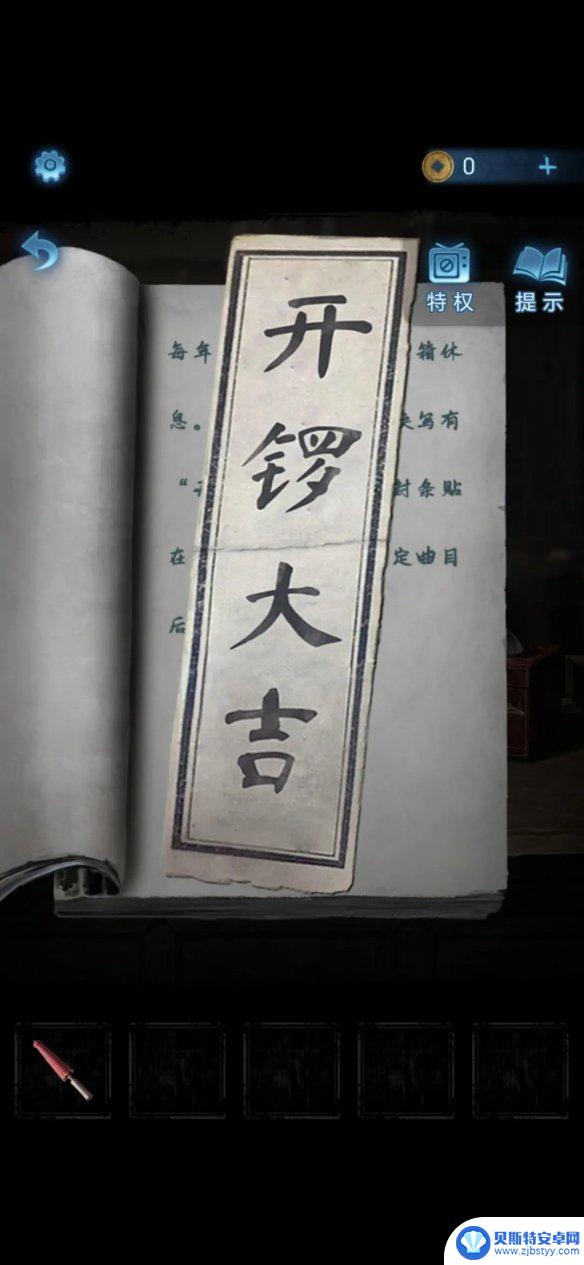 0
特权
提示
开锣大吉
每年 箱休
息。 写有
“ 封条贴
在 定曲目
后
贝斯特安卓网
www.zjbstyy.com